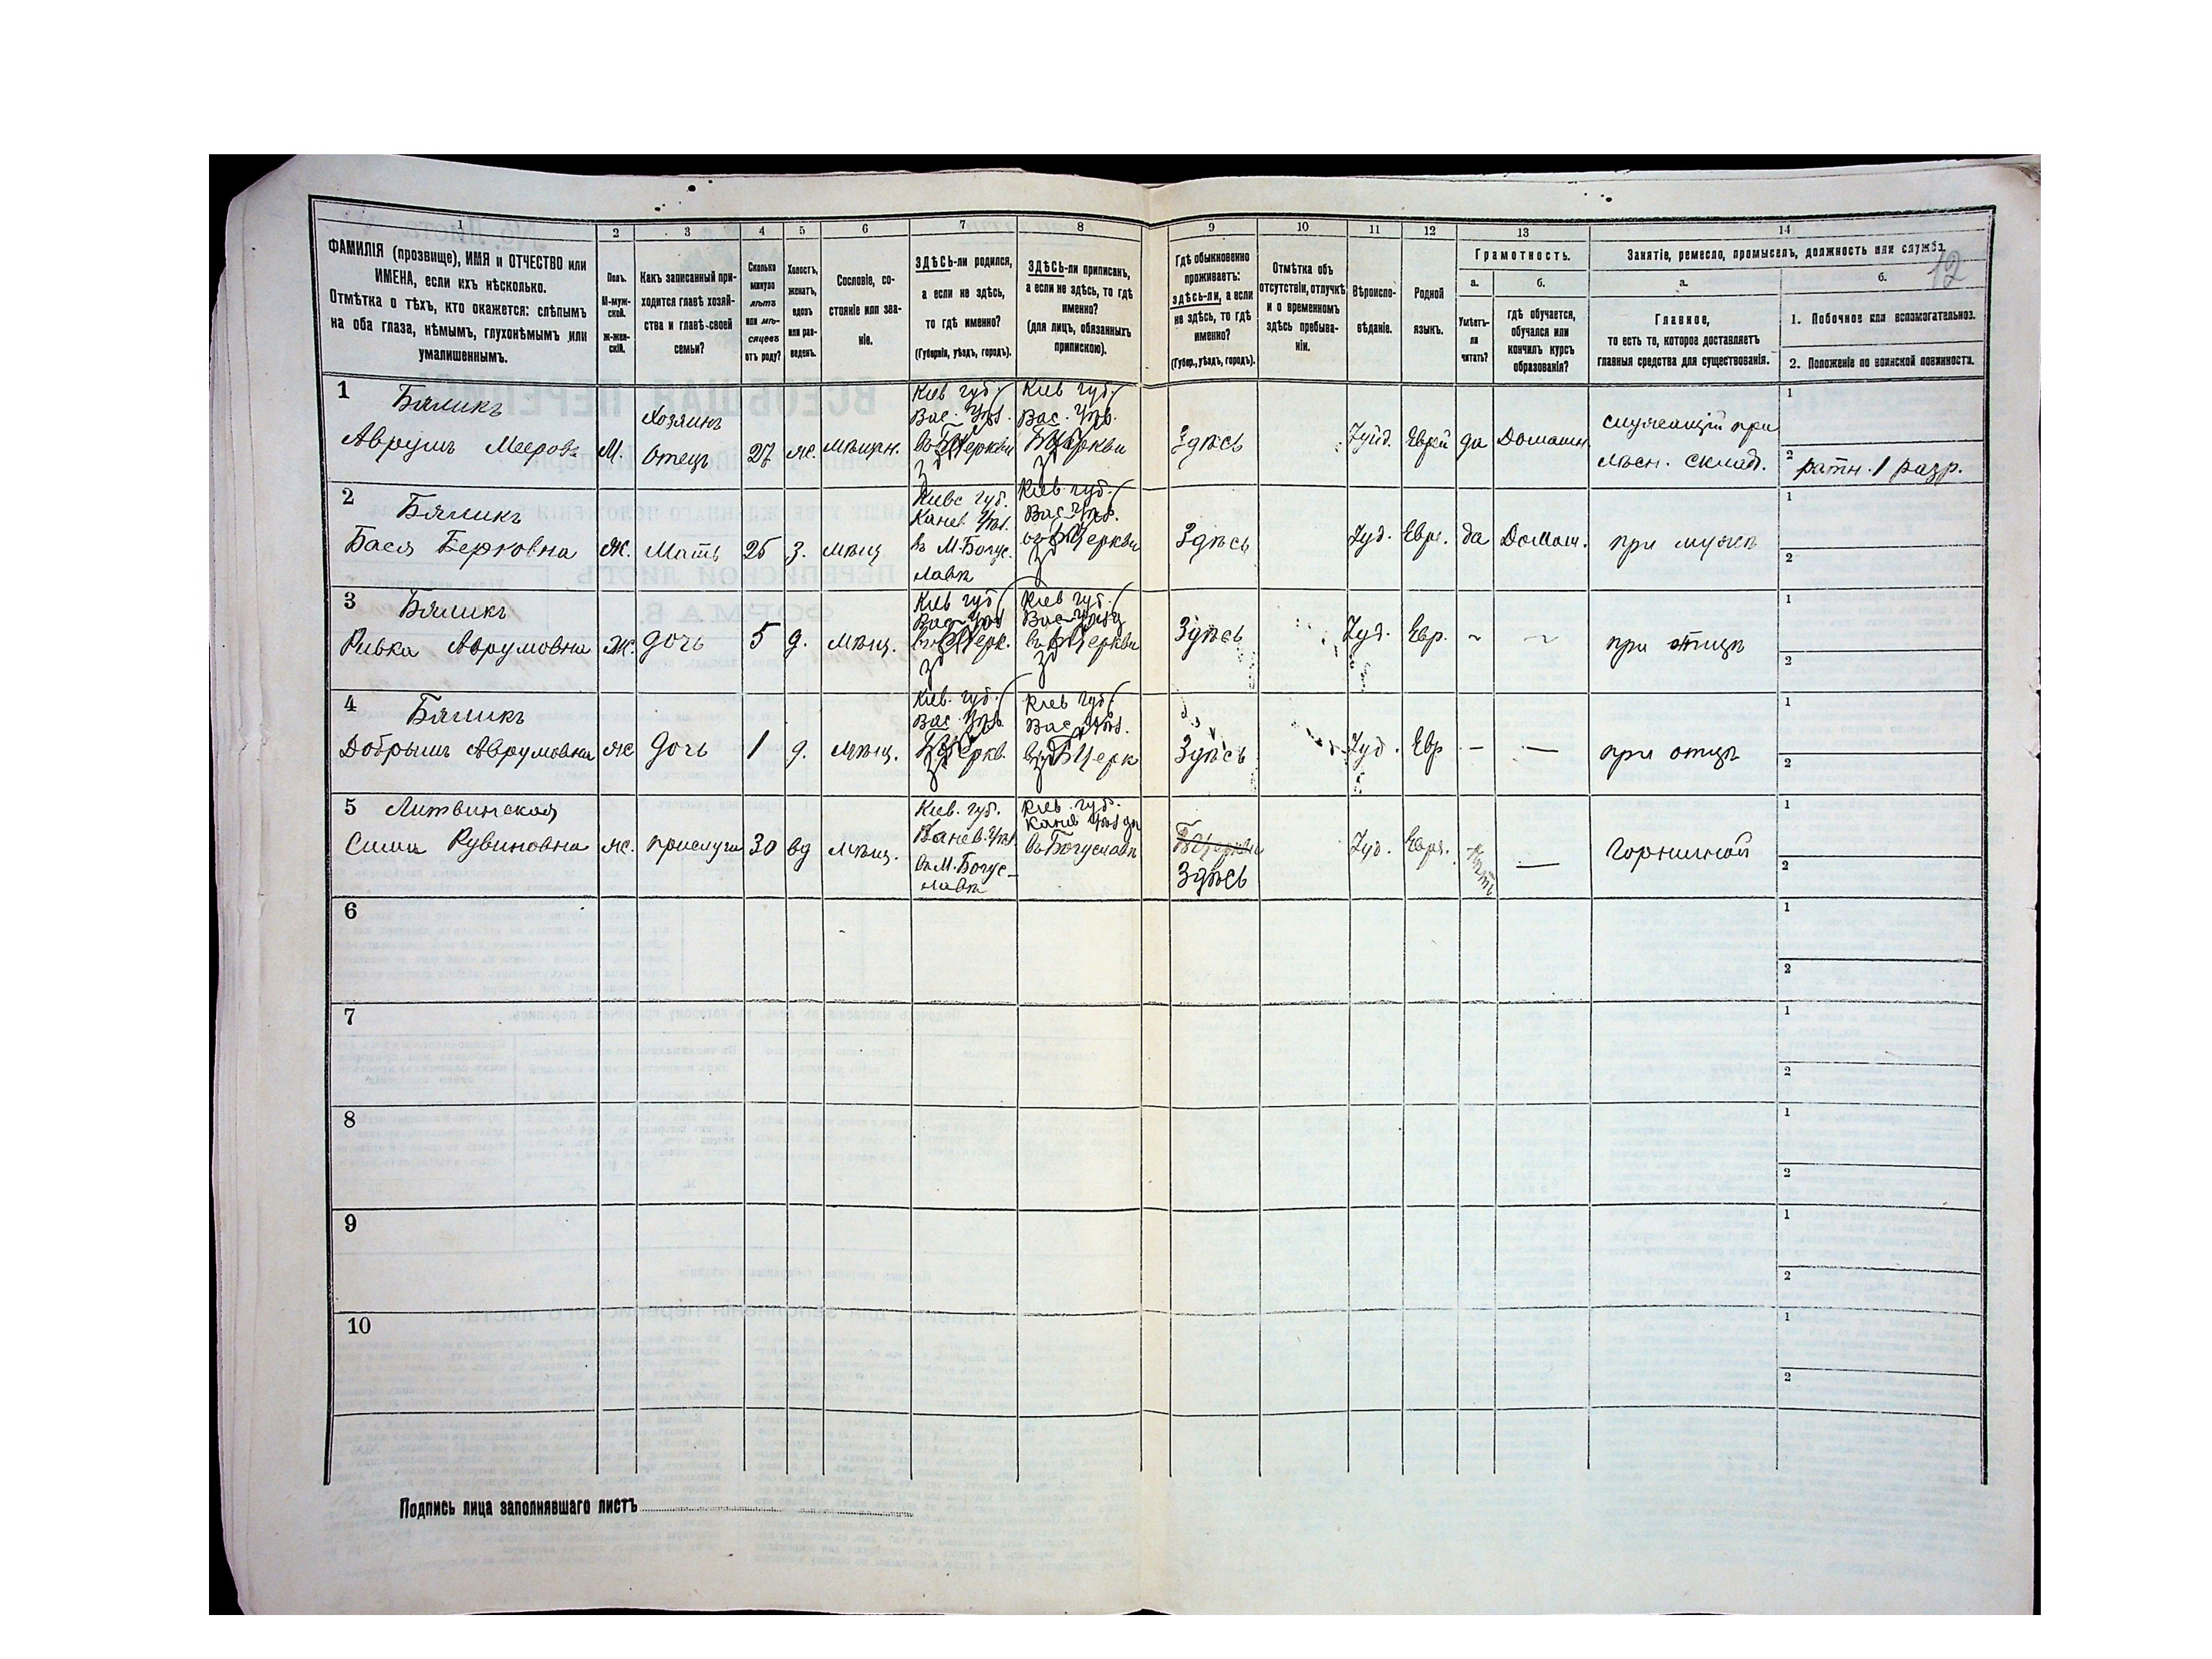 1
2
3
4
5
6
7
8
9
10
11
12
13
14
ФАМИЛІЯ (прозвище), ИМЯ и ОТЧЕСТВО или
ИМЕНА, если ихъ нѣсколько.
Отмѣтка о тѣхъ, кто окажется: слѣпымъ
на оба глаза, нѣмымъ, глухонѣмымъ или
умалишеннымъ.
Полъ.
М-муж-
ской.
Ж-жен-
скій.
Какъ записанный при-
ходится главѣ хозяй-
ства и главѣ своей
семьи?
Сколько
минуло
лѣтъ
или мѣ-
сяцевъ
отъ роду?
Холостъ,
женатъ,
вдовъ
или раз-
веденъ.
Сословіе, со-
стояніе или зва-
ніе.
ЗДѢСЬ-ли родился,
а если не здѣсь,
то гдѣ именно?
(Губернія, уѣздъ, городъ).
ЗДѢСЬ-ли приписанъ,
а если не здѣсь, то гдѣ
именно?
(для лицъ, обязанныхъ
припискою).
Гдѣ обыкновенно
проживаетъ:
здѣсь-ли, а если
не здѣсь, то гдѣ
именно?
(Губер., уѣздъ, городъ).
Отмѣтка объ
отсутствіи, отлучкѣ
и о временномъ
здѣсь пребыва-
ніи.
Вѣроиспо-
вѣданіе.
Родной
языкъ.
Грамотность.
а.
б.
Умѣетъ-
ли
читать?
гдѣ обучается,
обучался или
кончилъ курсъ
образованія?
Занятіе, ремесло, промыселъ, должность или служба.
12
а.
б.
Главное,
то есть то, которое доставляетъ
главныя средства для существованія.
1. Побочное или вспомогательное.
2. Положеніе по воинской повинности.
1
Бяликъ
Аврумъ Мееровъ
М.
Хозяинъ
Отецъ
27
ж.
мѣщан.
Кіев губ.
Вас. Уѣз.
въ Б Церкви
Кіев губ.
Вас. Уѣз.
Б Церкви
Здѣсь
Іуйд.
Еврей
да
Домашн.
служащій при
лѣсн. склад.
1
2
ратн. 1 разр.
2
Бяликъ
Бася Берковна
Ж.
Мать
25
З.
мѣщ
Киевс губ.
Канев. Уѣз.
въ М. Богус.
лавѣ
Кіев. губ.
Вас. Уѣз.
въ Б Церкви
Здѣсь
Іуд.
Евре.
да
Домаш.
при мужѣ
1
2
3
Бяликъ
Ривка Аврумовна
Ж.
дочь
5
д.
мѣщ.
Кіев губ
Вас Уѣз
въ Б Церк.
Кіев губ.
Вас Уѣзд
въ Б Церкви
Здѣсь
Іуд.
Евр.
~
~
при отцѣ
1
2
4
Бяликъ
Добрышъ Аврумовна
Ж
дочь
1
д.
мѣщ.
Кіев. губ.
Вас. Уѣз.
Б Церкв.
Кіев губ
Вас Уѣз.
въ Б Церк
Здѣсь
Іуд.
Евр
—
—
при отцѣ
1
2
5
Литвинская
Сима Рувиновна
Ж.
прислуга
30
вд
мѣщ.
Кіев. губ.
Канев. Уѣз.
въ М. Богус-
лавѣ
Кіев. губ.
Канев Уѣзда
въ Богуславѣ
Б Церкви
Здѣсь
Іуд.
Евре.
Нѣтъ
—
Горничной
1
2
6
1
2
7
1
2
8
1
2
9
1
2
10
1
2
Подпись лица заполнявшаго листъ